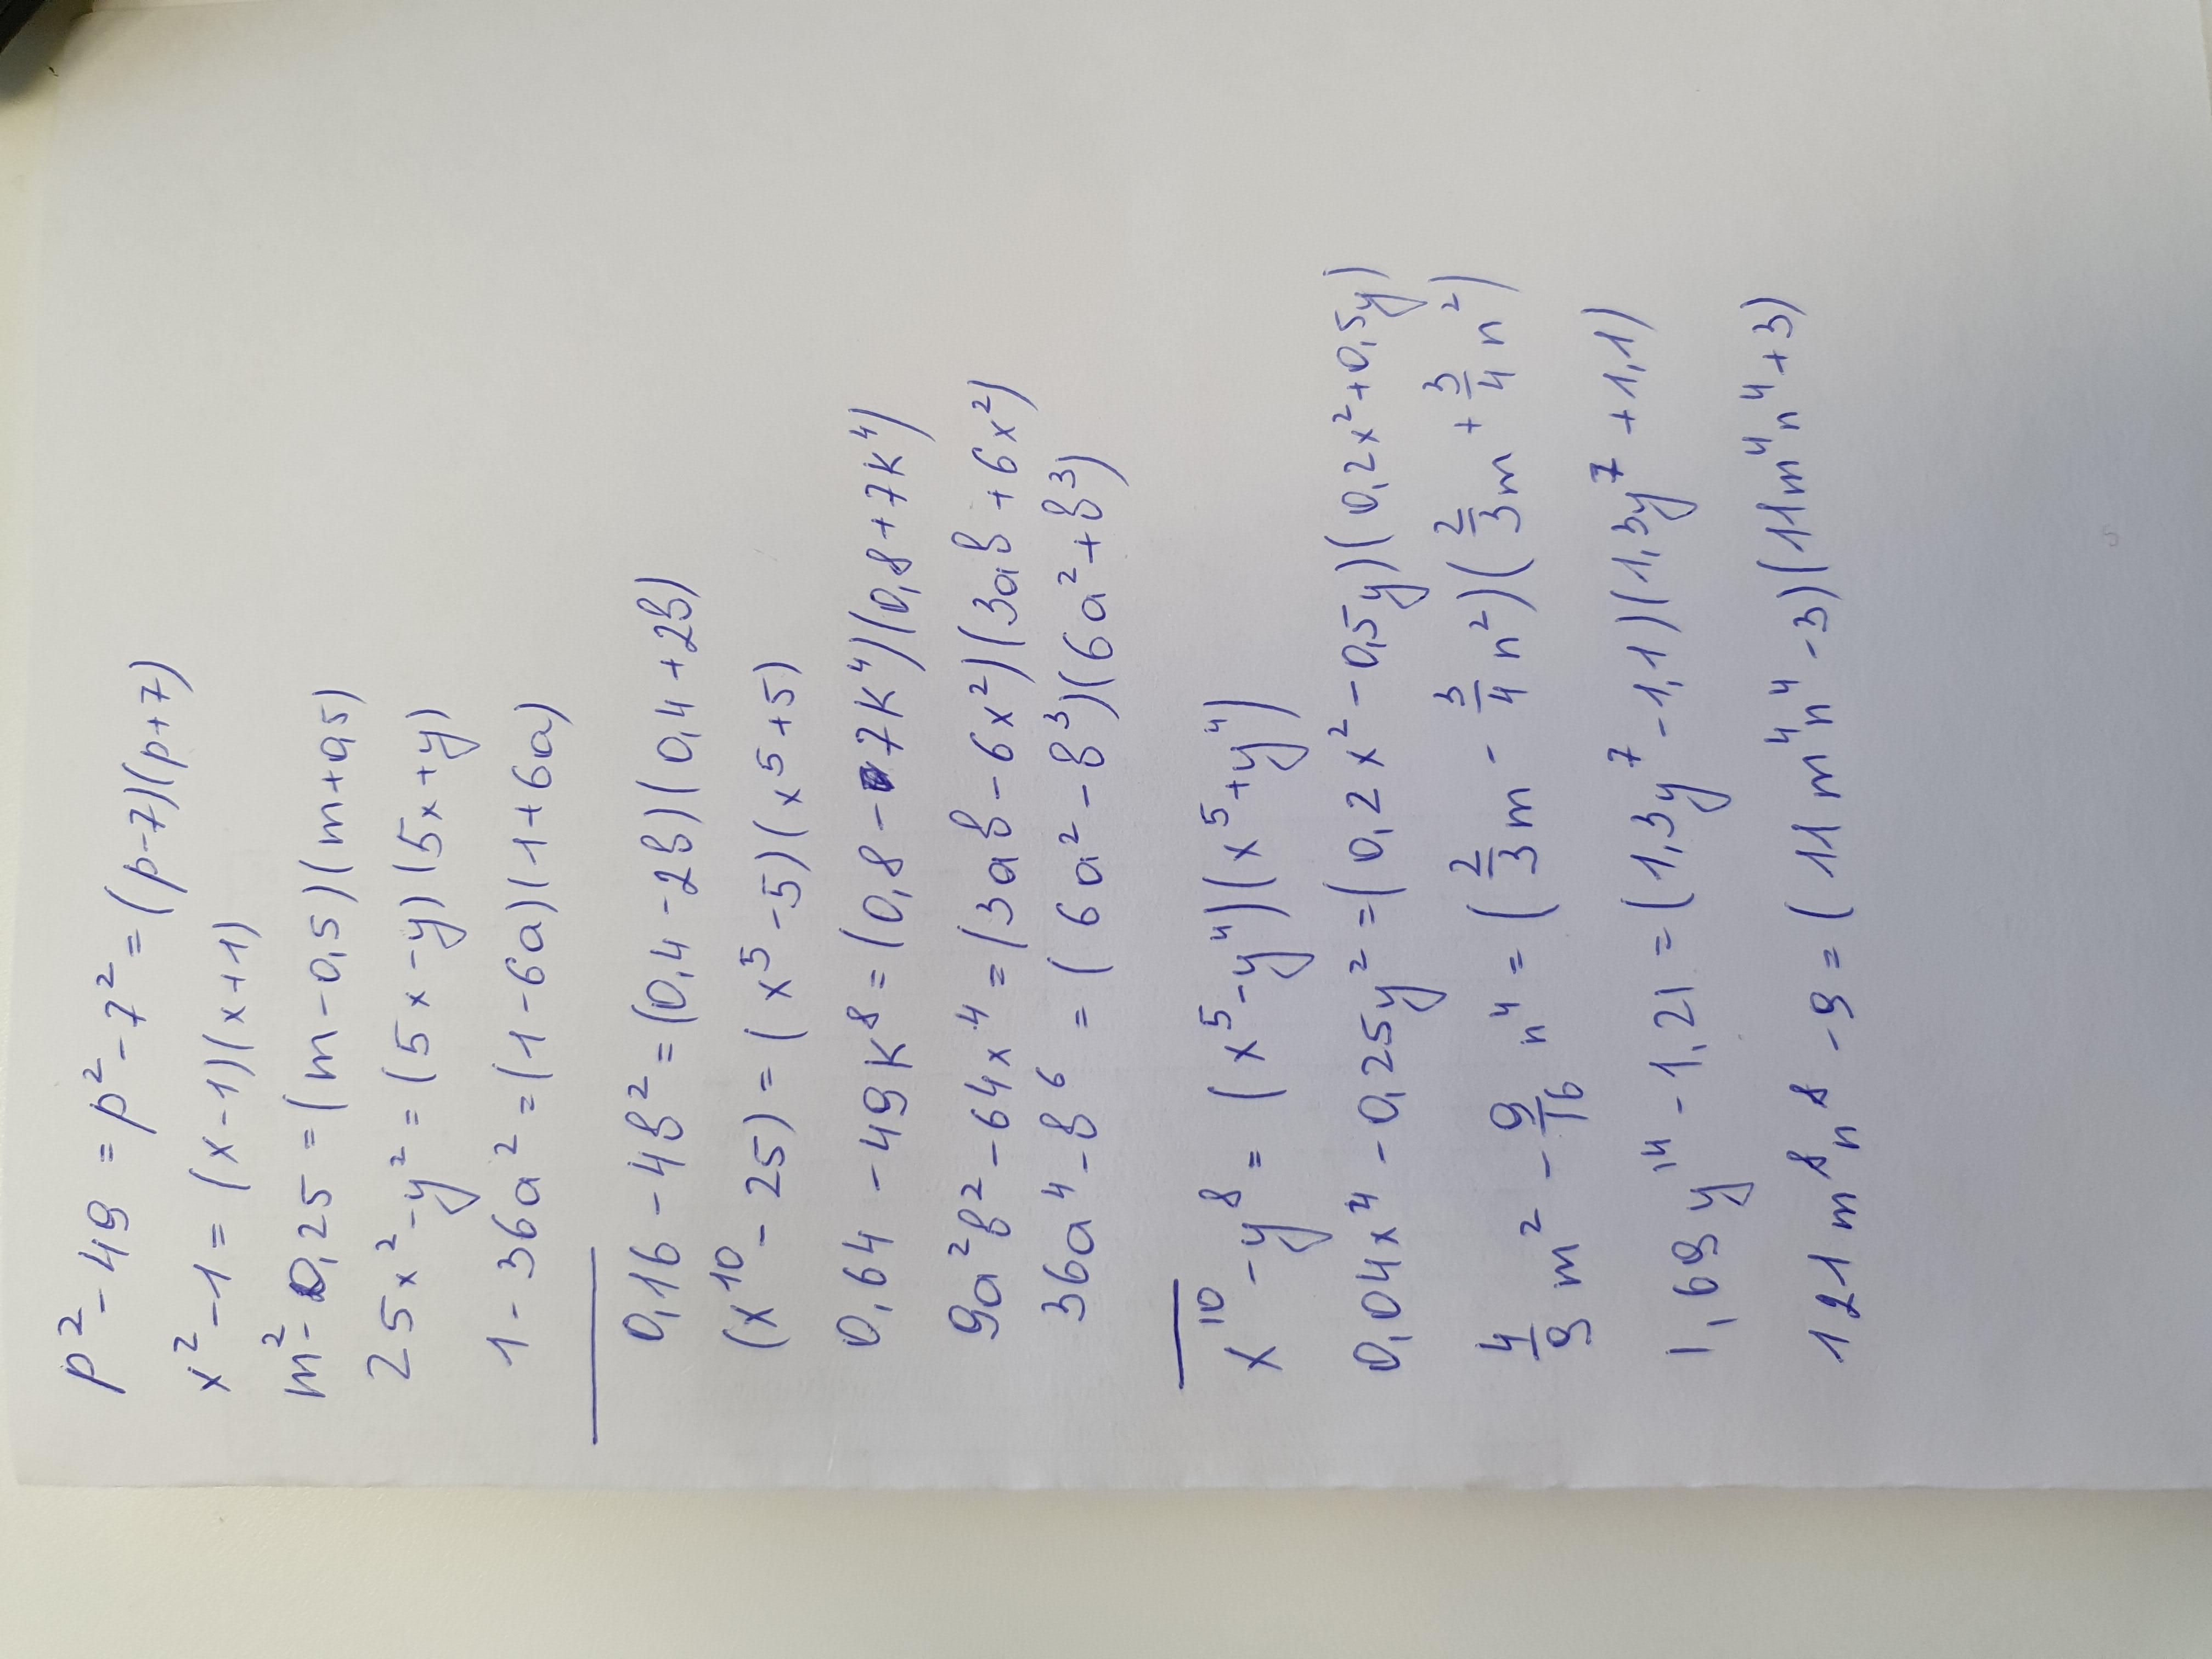 p² - 49 = p² - 7² = (p-7)(p+7)
x² - 1 = (x-1)(x+1)
m² - 0,25 = (m-0,5)(m+0,5)
25x² - y² = (5x-y)(5x+y)
1 - 36a² = (1-6a)(1+6a)
0,16 - 4в² = (0,4-2в)(0,4+2в)
(x¹⁰ - 25) = (x⁵-5)(x⁵+5)
0,64 - 49k⁸ = (0,8-7k⁴)(0,8+7k⁴)
9a²в² - 64x⁴ = (3aв-6x²)(3aв+6x²)
36a⁴ - в⁶ = (6a²-в³)(6a²+в³)
x¹⁰ - y⁸ = (x⁵-y⁴)(x⁵+y⁴)
0,04x⁴ - 0,25y² = (0,2x²-0,5y)(0,2x²+0,5y)
4/9 m² - 9/16 n⁴ = (2/3 m - 3/4 n²)(2/3 m + 3/4 n²)
1,69y¹⁴ - 1,21 = (1,3y⁷-1,1)(1,3y⁷+1,1)
121m⁸n⁸ - 9 = (11m⁴n⁴-3)(11m⁴n⁴+3)